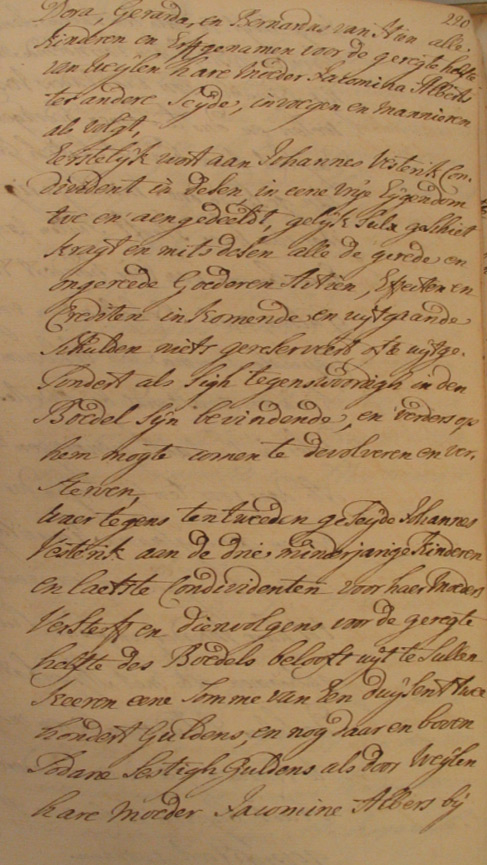 290
Dora, Gerarda, en Bernardus van Ain alle
kinderen en Erffgenamen voor de geregte helfte
van weijlen hare moeder Jacomina Albers
ter andere seijde, invoegen en mannieren
als volgt,
Eerstelijk wort aan Johannes Vesterik Con-
divident in desen, in eene vrije Eijgendom
toe en aengedeeldt, gelijk sulx geschiet
kragt en mits desen alle de gerede en
ongereede Goederen Actien, Effecten en
Crediten inkomende en uijtgaande
schulden niets gereserveert ofte uijtge-
sondert als sigh tegenswoordigh in den
Boedel sijn bevindende, en verders op
hem mogte comen te devolveren en ver-
sterven,
waer tegens ten tweeden geseijde Johannes
Vesterik aan de drie minderjarige Kinderen
en laetste Condividenten voor haer moeders
Versterff en dienvolgens voor de geregte
helfte des Boedels belooft uijt te sullen
keeren eene somme van Een duijsent twe
hondert Guldens, en nog daar en boven
sodane sestigh Guldens als door weijlen
hare moeder Jacomine Albers bij